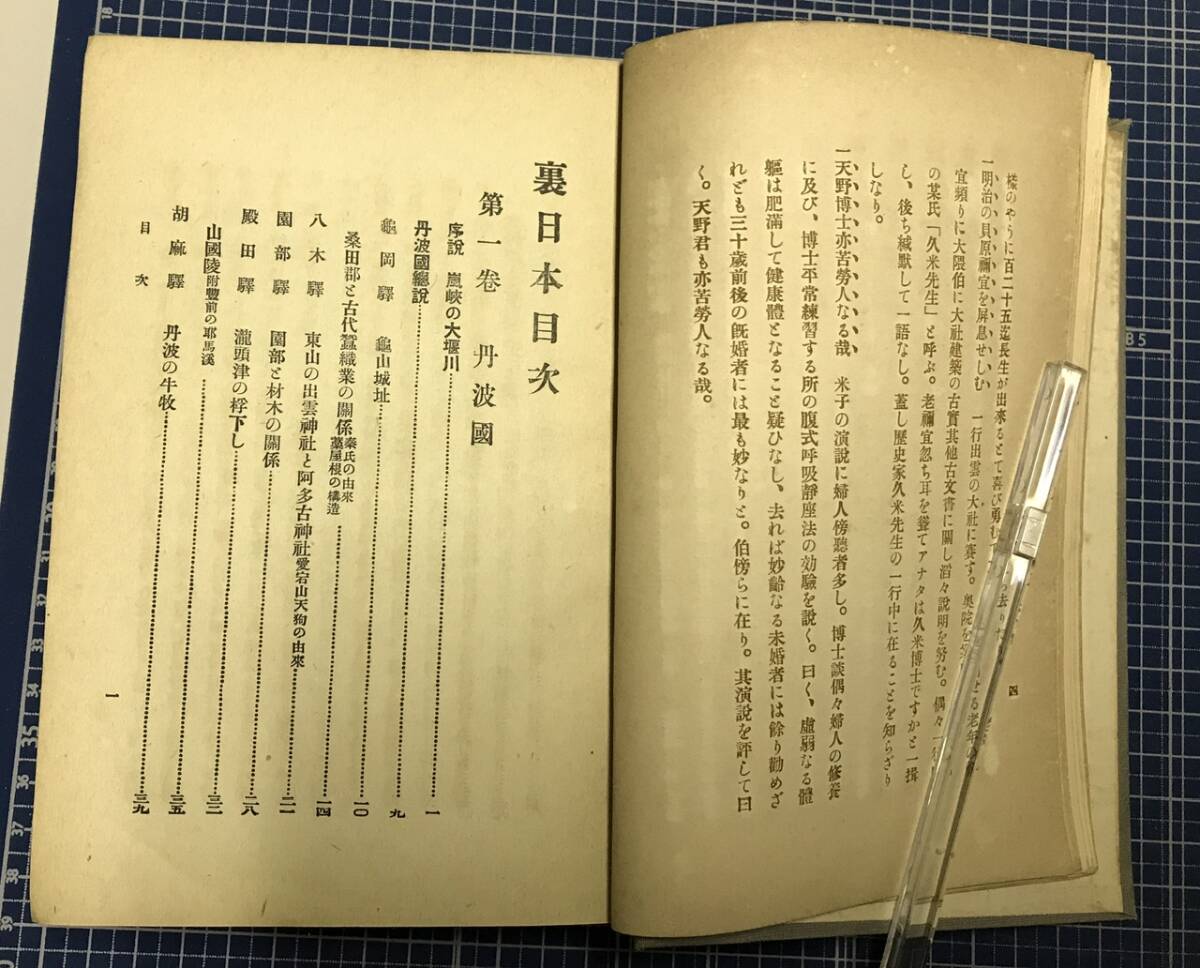 樣のやうに百二十五迄長生が出來るとて喜び勇む
一明治の貝原禰宜を屏息せしむ 一行出雲の大社に賽す。奧院を
る老年の
宜頻りに大隈伯に大社建築の古實其他古文書に關し滔々說明を努む。偶々一
の某氏「久米先生」と呼ぶ。老禰宜忽ち耳を聳てアナタは久米博士ですかと一揖
し、後ち緘默して一語なし。蓋し歷史家久米先生の一行中に在ることを知らざり
しなり。
一天野博士亦苦勞人なる哉 米子の演說に婦人傍聽者多し。博士談偶々婦人の修養
に及び、博士平常練習する所の腹式呼吸靜座法の効驗を說く。曰く、虛弱なる體
軀は肥滿して健康體となること疑ひなし、去れば妙齡なる未婚者には餘り勸めざ
れども三十歲前後の旣婚者には最も妙なりと。伯傍らに在り。其演說を評して曰
く。天野君も亦苦勞人なる哉。
四
裏日本目次
第一卷 丹波國
序說 嵐峽の大堰川 一
丹波國總說 九
龜岡驛 龜山城址 一〇
桑田郡と古代蠶織業の關係 秦氏の由來 藁屋根の構造 一四
八木驛 東山の出雲神社と阿多古神社愛宕山天狗の由來 二一
園部驛 園部と材木の關係 二八
殿田驛 瀧頭津の桴下し 三三
山國陵附豐前の耶馬溪 三五
胡麻驛 丹波の牛牧 三九
目次
一
18
85
85
31
32
33
34
35
36
37
38
39